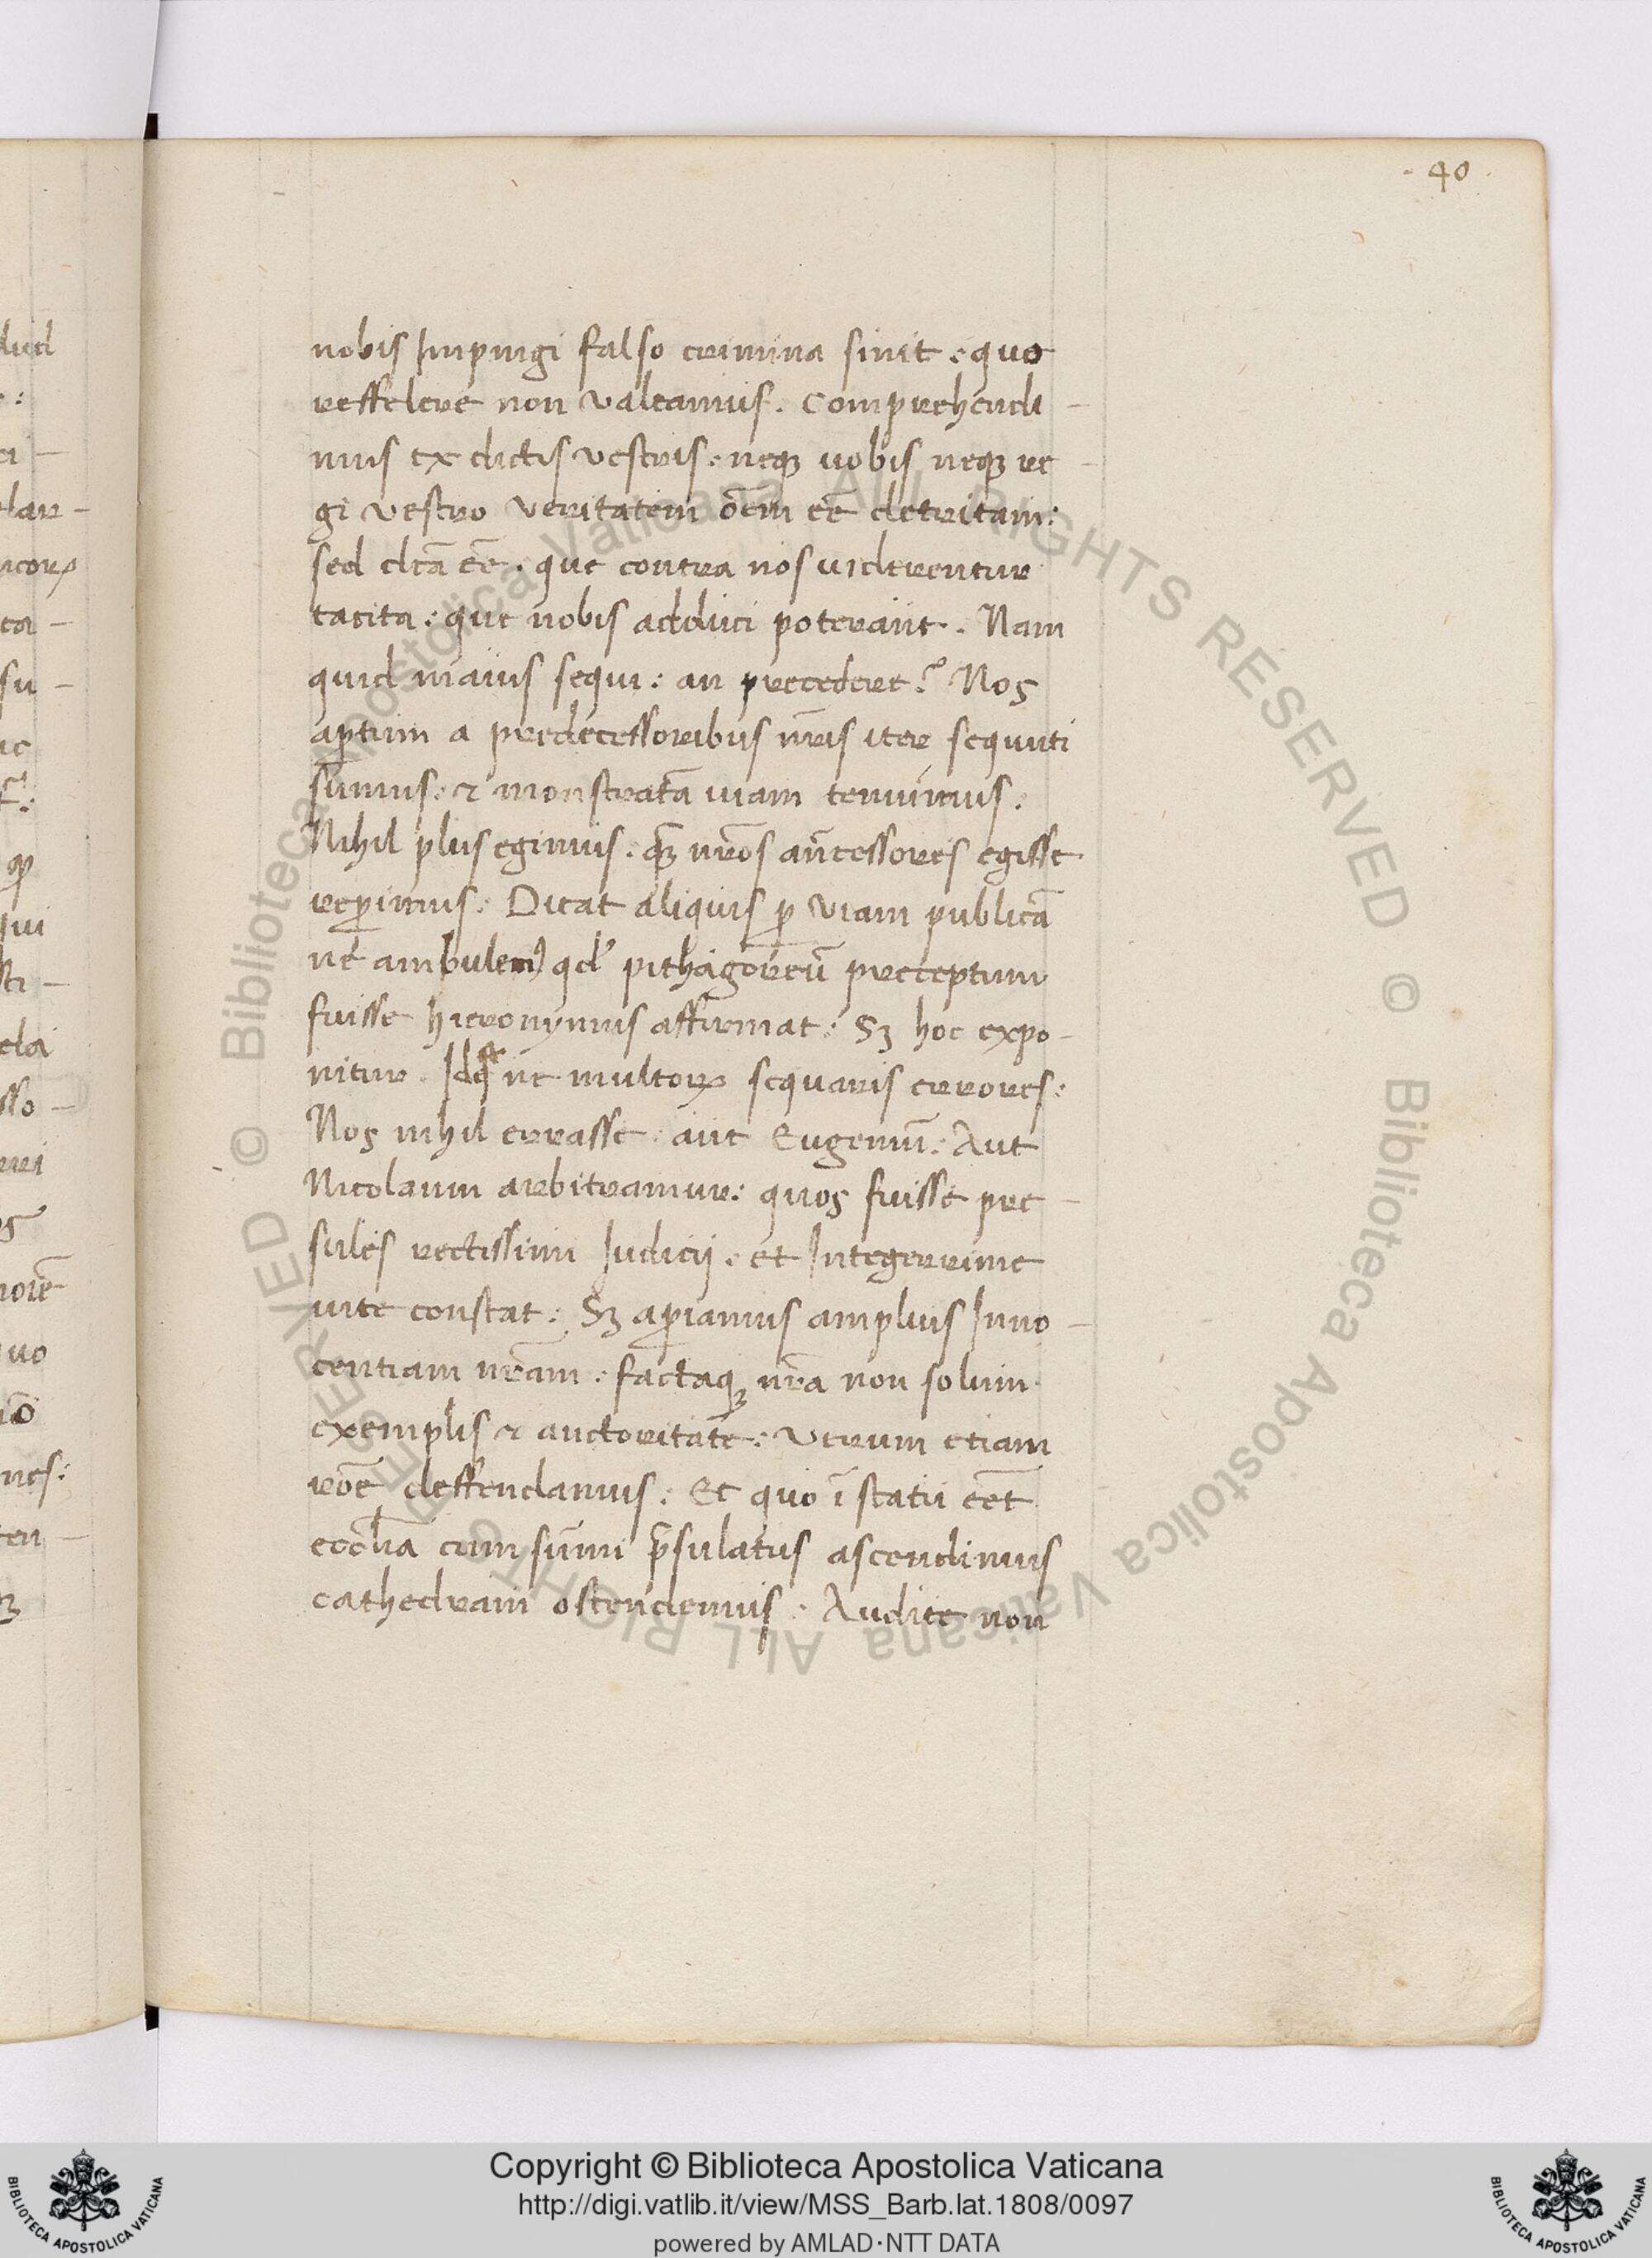 40
nobis Impingi falso crimina sinit. quo
reffelere non valeamus. Comprehendi-
mus ex dictis vestris. neqꝫ uobis neqꝫ re-
gi vestro veritatem oēm eē detritam:
sed dc̄ā eē. que contra nos uiderentur
tacita: que nobis adduci poterant. Nam
quid maius sequi: an precedere? Nos
aꝑtum a predecessoribus nr̄is iter sequuti
sumus. & monstratā uiam tenuimus.
Nihil plus egimus. qꝫ nr̄os an̄cessores egisse
reꝑimus. Dicat aliquis ꝑ viam publicā
ne ambulem) qd' pithagoreū preceptum
fuisse hieronymus affirmat: Sꝫ hoc expo-
nitur. ne multoꝝ sequaris errores:
Nos nihil errasse. aut Eugeniū. Aut
Nicolaum arbitramur: quos fuisse pre-
sules rectissimi Iudicij. et Integerrime
uite constat: Sꝫ aꝑiamus amplius Inno-
centiam nr̄am. factaqꝫ nr̄a non solum
exemplis & auctoritate: verum etiam
rōe deffendamus. Et quo ī statu eēt
eccl̄ia cum sūmi p̄sulatus ascendimus
cathedram ostendemus. Audite non
lud
elar-
ta-
su-
ac
qui
ela
sso-
uo
nes:
ten-
Copyright © Biblioteca Apostolica Vaticana
http://digi.vatlib.it/view/MSS_Barb.lat.1808/0097
powered by AMLAD·NTT DATA
BIBLIOTECA APOSTOLICA VATICANA
BIBLIOTECA APOSTOLICA VATICANA
© Biblioteca Apostolica Vaticana ALL RIGHTS RESERVED © Biblioteca Apostolica Vaticana ALL RIGHTS RESERVED